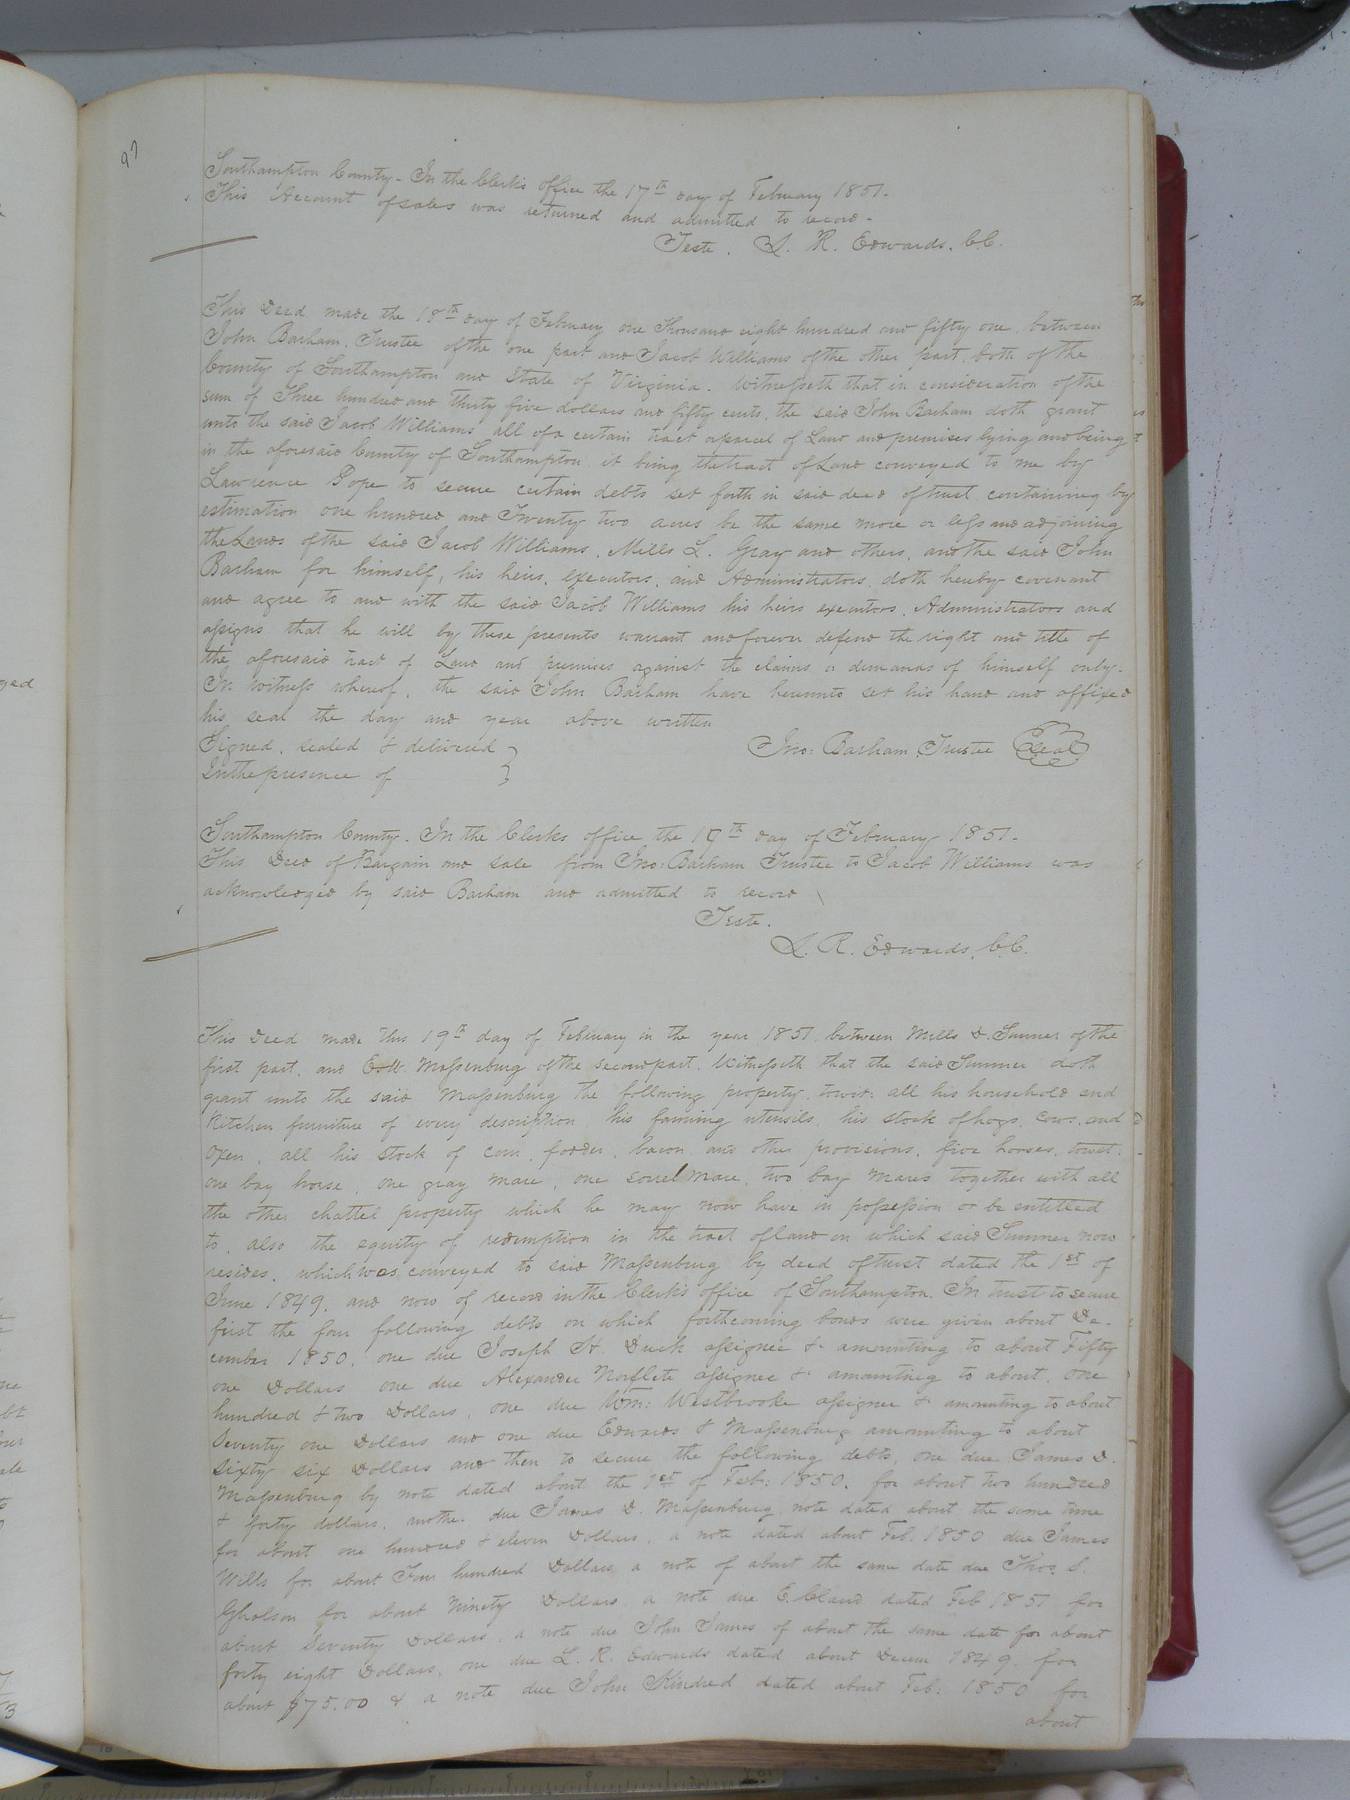 97
Southampton County - In the Clerks office the 17th day of February 1851.
This Account of sales was returned and admitted to record -
Teste. L. R. Edwards. C.C.
This Deed made the 18th day of February one Thousand eight hundred and fifty one between
John Barham, Trustee of the one part and Jacob Williams of the other part, both of the
County of Southampton and State of Virginia. Witnesseth that in consideration of the
sum of Three hundred and thirty five dollars and fifty cents, the said John Barham doth grant
unto the said Jacob Williams all of a certain tract or parcel of Land and premises lying and being
in the aforesaid County of Southampton it being the tract of Land conveyed to me by
Lawrence Pope to secure certain debts set forth in said deed of trust containing by
estimation one hundred and Twenty two acres be the same more or less and adjoining
the Lands of the said Jacob Williams, Mills L. Gray and others, and the said John
Barham for himself, his heirs, executors, and Administrators doth hereby covenant
and agree to and with the said Jacob Williams his heirs executors, Administrators and
assigns that he will by these presents warrant and forever defend the right and title of
the aforesaid tract of Land and premises against the claims or demands of himself only.
In witness whereof, the said John Barham have hereunto set his hand and affixed
his seal the day and year above written
Signed, sealed & delivered } Jno: Barham, Trustee Seal
In the presence of }
Southampton County. In the Clerks office the 19th day of February 1851.
This Deed of Bargain and sale from Jno: Barham Trustee to Jacob Williams was
acknowledged by said Barham and admitted to record
Teste.
L. R. Edwards, C.C.
This Deed made this 19th day of February in the year 1851 between Mills D. Sumner of the
first part, and Edw. Massenburg of the second part. Witnesseth that the said Sumner doth
grant unto the said Massenburg the following property, towit: all his household and
Kitchen furniture of every description, his farming utensils, his stock of hogs, cows, and
Oxen, all his stock of corn, fodder, bacon and other provisions, five horses, towit:
one bay horse, one gray mare, one sorrel mare, two bay mares together with all
the other chattel property which he may now have in possession or be entitled
to, also the equity of redemption in the tract of land on which said Sumner now
resides, which was conveyed to said Massenburg by deed of trust dated the 1st of
June 1849, and now of record in the Clerk's office of Southampton. In trust to secure
first the four following debts on which forthcoming bonds were given about De-
cember 1850, one due Joseph H. Duck assignee &c amounting to about Fifty
one Dollars one due Alexander Norflete assignee &c amounting to about, one
hundred & two Dollars, one due Wm: Westbrooke assignee &c amounting to about
Seventy one Dollars and one due Edwards & Massenburg amounting to about
Sixty six Dollars and then to secure the following debts, one due James D.
Massenburg by note dated about the 1st of Feb: 1850, for about two hundred
& forty dollars, another due James D. Massenburg note dated about the same time
for about one hundred & eleven Dollars, a note dated about Feb. 1850 due James
Wills for about Four hundred Dollars a note of about the same date due Thos. S.
Gholson for about Ninety Dollars a note due E. Claud dated Feb 1851 for
about Seventy Dollars, a note due John James of about the same date for about
forty eight Dollars, one due L. R. Edwards dated about Decem 1849, for
about $75.00 & a note due John Kindred dated about Feb: 1850 for
about